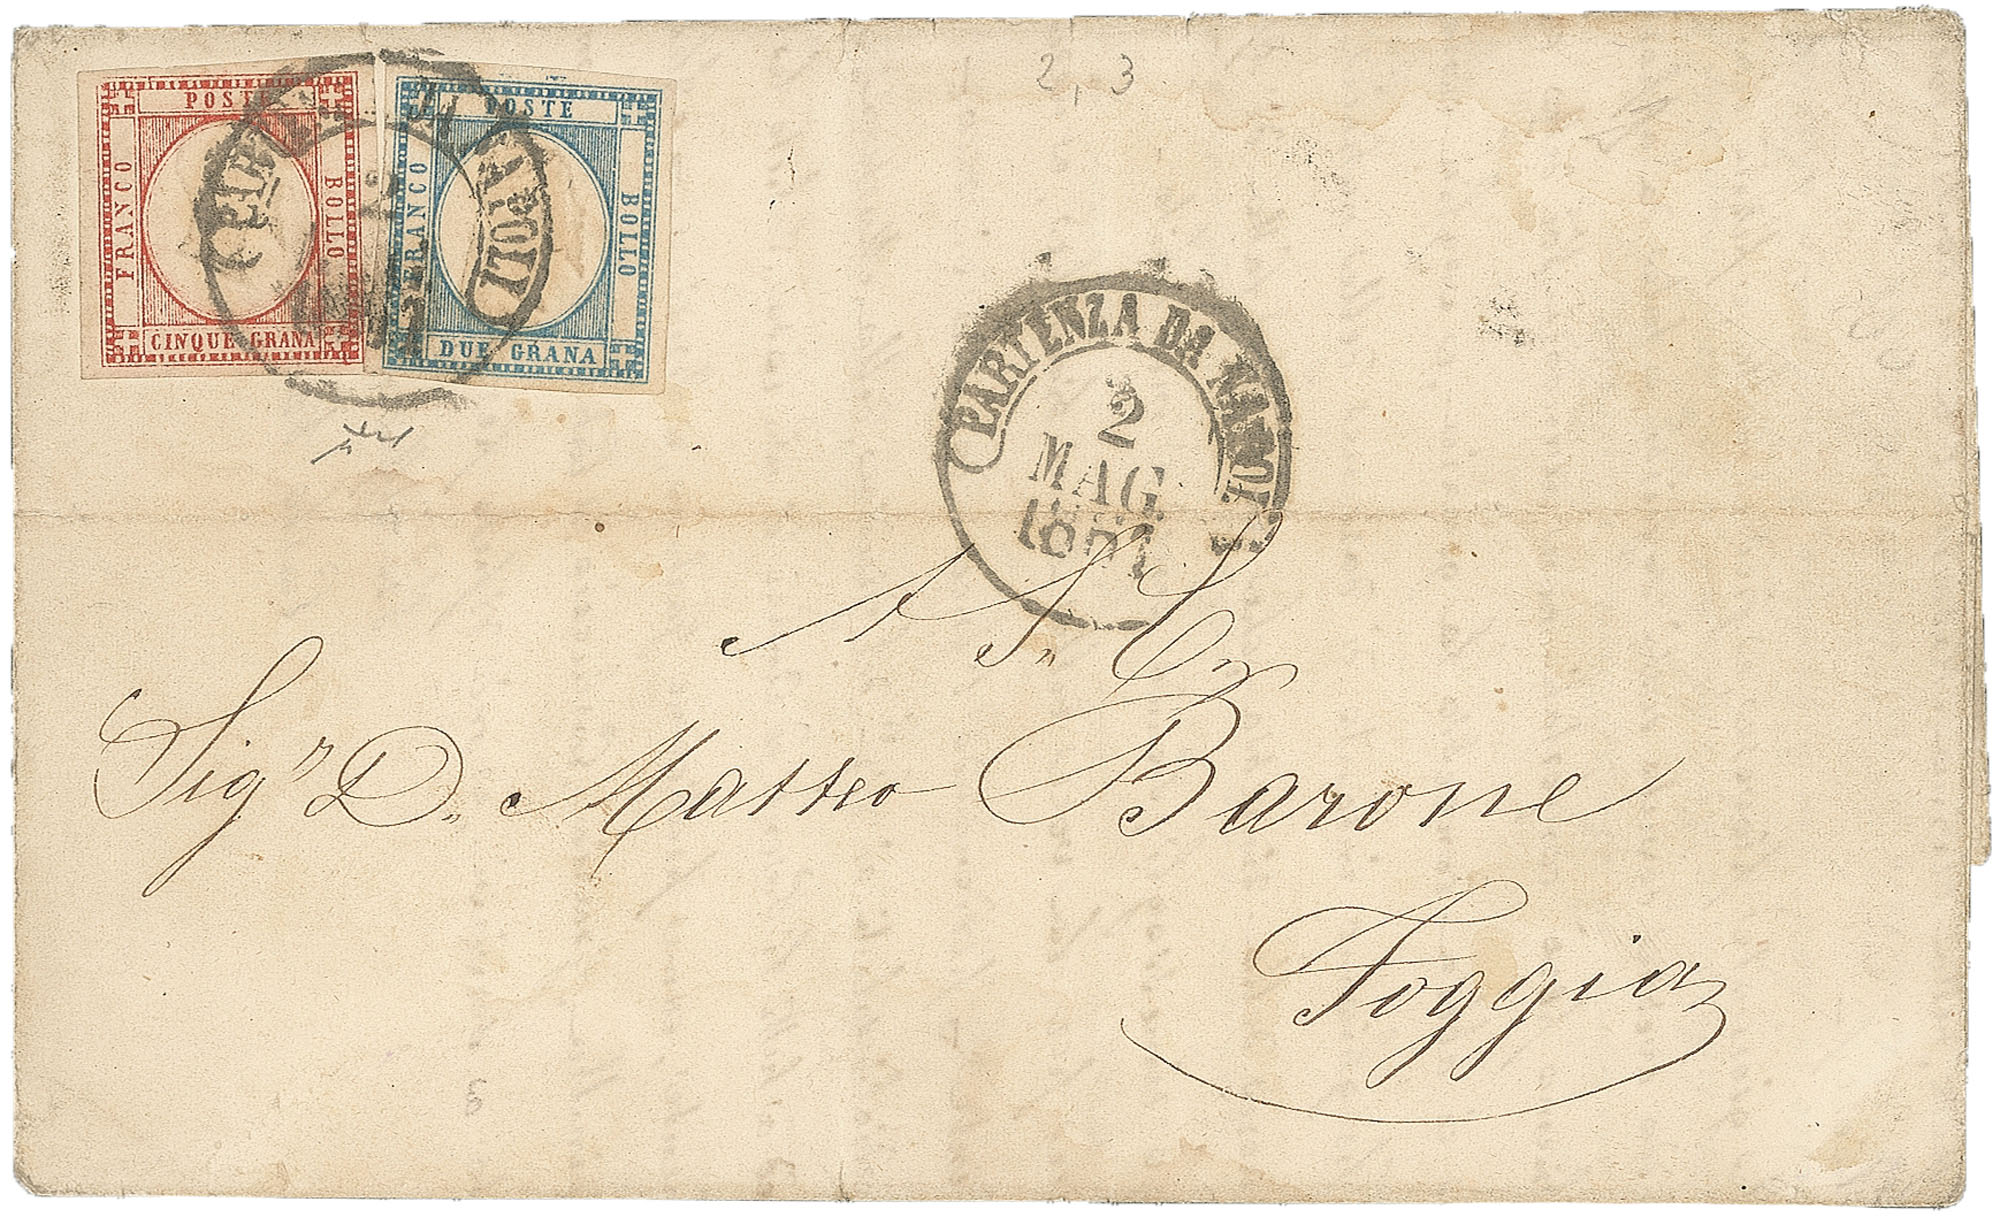 POSTE
FRANCO
BOLLO
CINQUE GRANA
POSTE
FRANCO
BOLLO
DUE GRANA
2,3
PARTENZA DA NAPOLI
2
MAG.
A S. E.
Sig.r D. Matteo Barone
Foggia
5